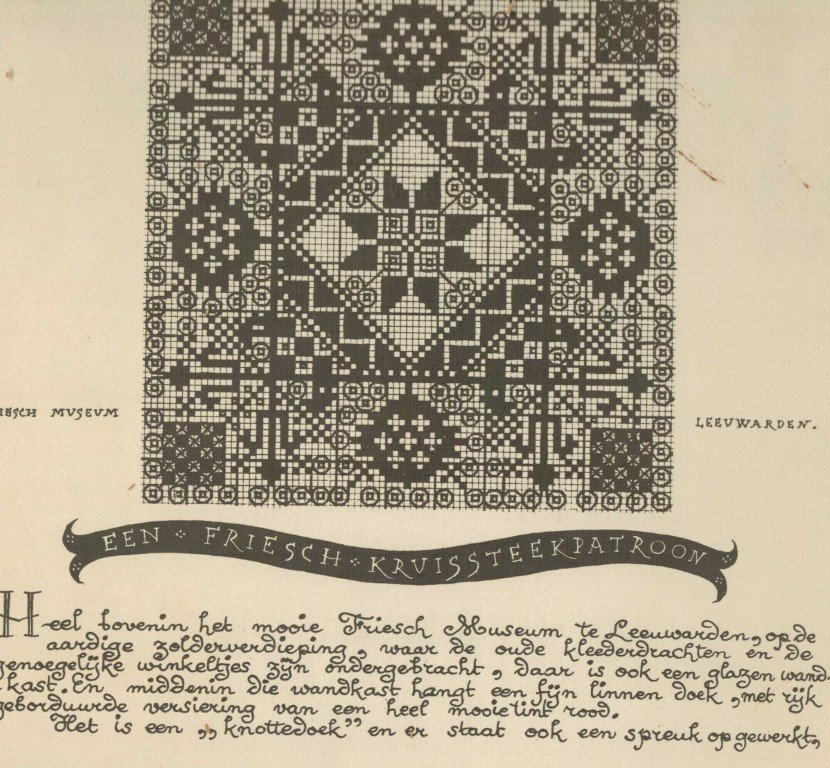 MUSEUM
LEEUWARDEN.
EEN FRIESCH KRUISSTEEKPATROON
Heel bovenin het mooie Friesch Museum te Leeuwarden, op de
aardige zolderverdieping, waar de oude kleederdrachten en de
genoegelijke winkeltjes zijn ondergebracht, daar is ook een glazen wand-
kast. En middenin die wandkast hangt een fijn linnen doek, met rijk
geborduurde versiering van een heel mooie tint rood.
Het is een „knottedoek" en er staat ook een spreuk op gewerkt,